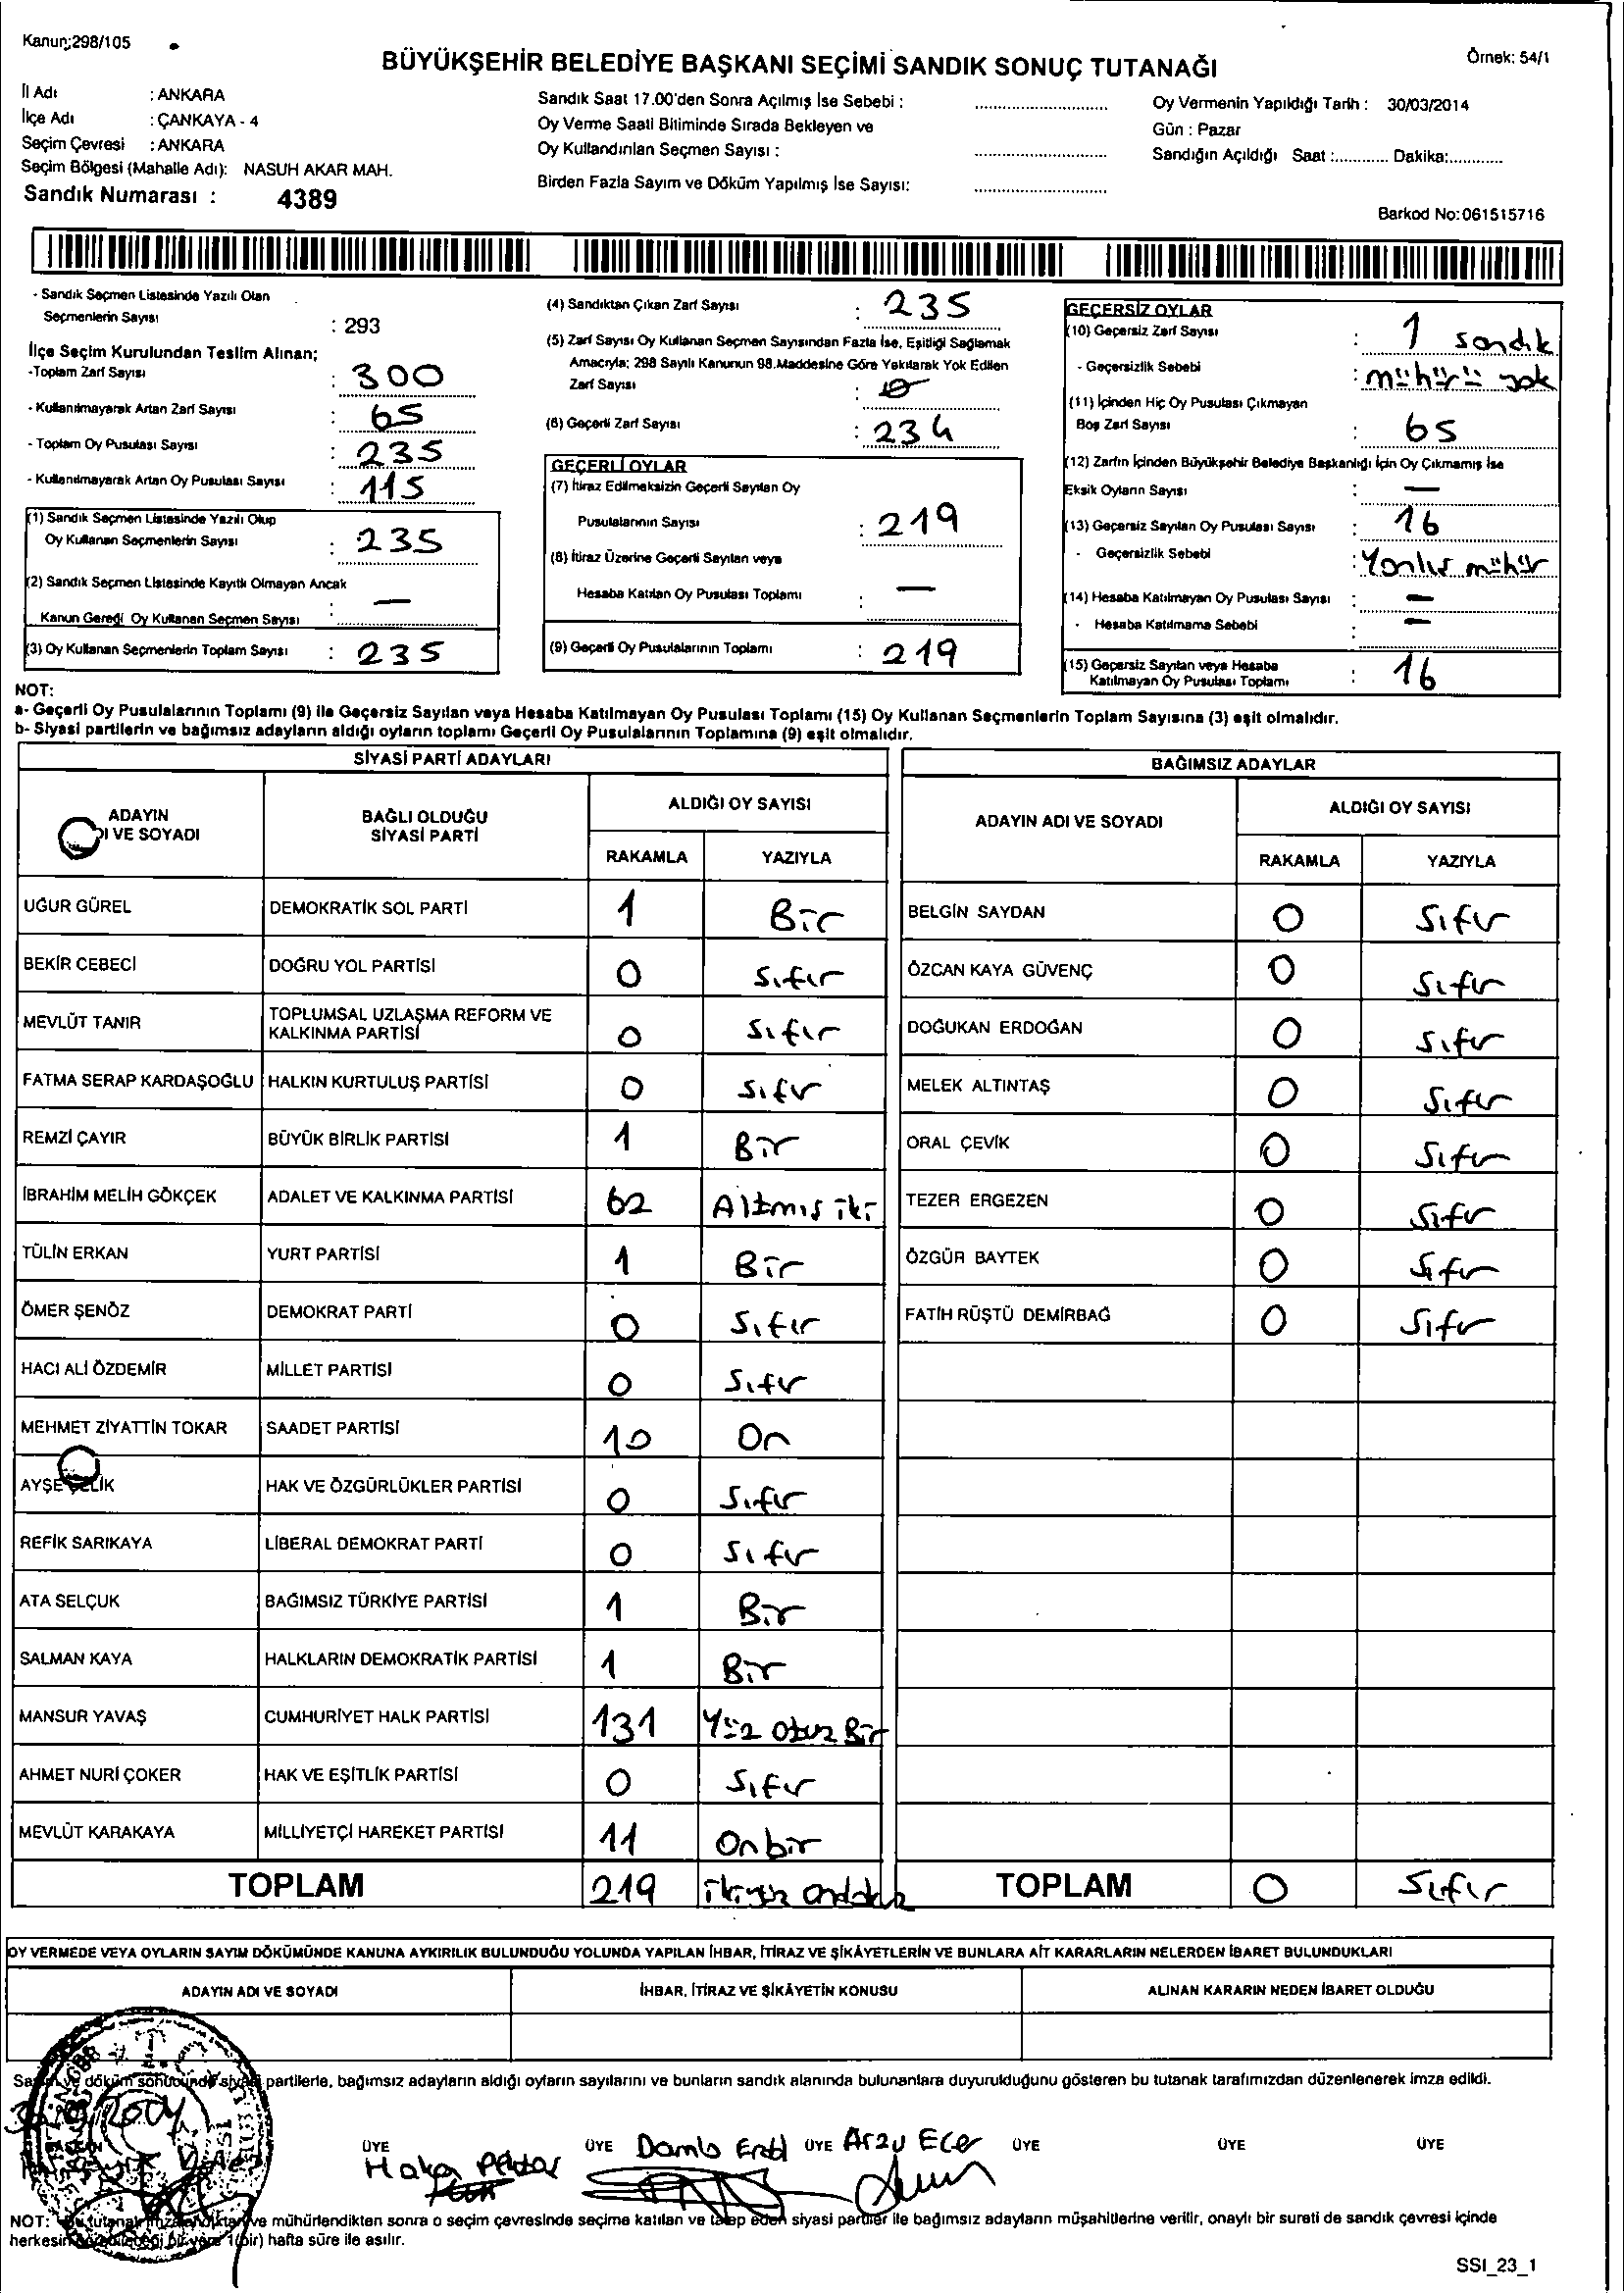 Kanun;298/105
Örnek: 54/1
BÜYÜKŞEHİR BELEDİYE BAŞKANI SEÇİMİ SANDIK SONUÇ TUTANAĞI
İl Adı : ANKARA
İlçe Adı : ÇANKAYA - 4
Seçim Çevresi : ANKARA
Seçim Bölgesi (Mahalle Adı): NASUH AKAR MAH.
Sandık Numarası : 4389
Sandık Saat 17.00'den Sonra Açılmış İse Sebebi :
Oy Verme Saati Bitiminde Sırada Bekleyen ve
Oy Kullandırılan Seçmen Sayısı :
Birden Fazla Sayım ve Döküm Yapılmış İse Sayısı:
Oy Vermenin Yapıldığı Tarih : 30/03/2014
Gün : Pazar
Sandığın Açıldığı Saat :............ Dakika:............
Barkod No:061515716
- Sandık Seçmen Listesinde Yazılı Olan
Seçmenlerin Sayısı : 293
İlçe Seçim Kurulundan Teslim Alınan;
-Toplam Zarf Sayısı : 300
- Kullanılmayarak Artan Zarf Sayısı : 65
- Toplam Oy Pusulası Sayısı : 235
- Kullanılmayarak Artan Oy Pusulası Sayısı : 115
(1) Sandık Seçmen Listesinde Yazılı Olup
Oy Kullanan Seçmenlerin Sayısı : 235
(2) Sandık Seçmen Listesinde Kayıtlı Olmayan Ancak
Kanun Gereği Oy Kullanan Seçmen Sayısı : —
(3) Oy Kullanan Seçmenlerin Toplam Sayısı : 235
(4) Sandıktan Çıkan Zarf Sayısı : 235
(5) Zarf Sayısı Oy Kullanan Seçmen Sayısından Fazla İse, Eşitliği Sağlamak
Amacıyla; 298 Sayılı Kanunun 98.Maddesine Göre Yakılarak Yok Edilen
Zarf Sayısı : 0
(6) Geçerli Zarf Sayısı : 234
GEÇERLİ OYLAR
(7) İtiraz Edilmeksizin Geçerli Sayılan Oy
Pusulalarının Sayısı : 219
(8) İtiraz Üzerine Geçerli Sayılan veya
Hesaba Katılan Oy Pusulası Toplamı : —
(9) Geçerli Oy Pusulalarının Toplamı : 219
GEÇERSİZ OYLAR
(10) Geçersiz Zarf Sayısı : 1 sandık
- Geçersizlik Sebebi : mühürü yok
(11) İçinden Hiç Oy Pusulası Çıkmayan
Boş Zarf Sayısı : 65
(12) Zarfın İçinden Büyükşehir Belediye Başkanlığı İçin Oy Çıkmamış İse
Eksik Oyların Sayısı : —
(13) Geçersiz Sayılan Oy Pusulası Sayısı : 16
- Geçersizlik Sebebi : Yanlış mühür
(14) Hesaba Katılmayan Oy Pusulası Sayısı : —
- Hesaba Katılmama Sebebi : —
(15) Geçersiz Sayılan veya Hesaba
Katılmayan Oy Pusulası Toplamı : 16
NOT:
a- Geçerli Oy Pusulalarının Toplamı (9) ile Geçersiz Sayılan veya Hesaba Katılmayan Oy Pusulası Toplamı (15) Oy Kullanan Seçmenlerin Toplam Sayısına (3) eşit olmalıdır.
b- Siyasi partilerin ve bağımsız adayların aldığı oyların toplamı Geçerli Oy Pusulalarının Toplamına (9) eşit olmalıdır.
SİYASİ PARTİ ADAYLARI
ADAYIN
VE SOYADI
BAĞLI OLDUĞU
SİYASİ PARTİ
ALDIĞI OY SAYISI
RAKAMLA YAZIYLA
UĞUR GÜREL DEMOKRATİK SOL PARTİ 1 Bir
BEKİR CEBECİ DOĞRU YOL PARTİSİ 0 Sıfır
MEVLÜT TANIR TOPLUMSAL UZLAŞMA REFORM VE
KALKINMA PARTİSİ 0 Sıfır
FATMA SERAP KARDAŞOĞLU HALKIN KURTULUŞ PARTİSİ 0 Sıfır
REMZİ ÇAYIR BÜYÜK BİRLİK PARTİSİ 1 Bir
İBRAHİM MELİH GÖKÇEK ADALET VE KALKINMA PARTİSİ 62 Altmış iki
TÜLİN ERKAN YURT PARTİSİ 1 Bir
ÖMER ŞENÖZ DEMOKRAT PARTİ 0 Sıfır
HACI ALİ ÖZDEMİR MİLLET PARTİSİ 0 Sıfır
MEHMET ZİYATTİN TOKAR SAADET PARTİSİ 10 On
AYŞE ÇELİK HAK VE ÖZGÜRLÜKLER PARTİSİ 0 Sıfır
REFİK SARIKAYA LİBERAL DEMOKRAT PARTİ 0 Sıfır
ATA SELÇUK BAĞIMSIZ TÜRKİYE PARTİSİ 1 Bir
SALMAN KAYA HALKLARIN DEMOKRATİK PARTİSİ 1 Bir
MANSUR YAVAŞ CUMHURİYET HALK PARTİSİ 131 Yüz otuz Bir
AHMET NURİ ÇOKER HAK VE EŞİTLİK PARTİSİ 0 Sıfır
MEVLÜT KARAKAYA MİLLİYETÇİ HAREKET PARTİSİ 11 Onbir
TOPLAM 219 ikiyüz ondokuz
BAĞIMSIZ ADAYLAR
ADAYIN ADI VE SOYADI
ALDIĞI OY SAYISI
RAKAMLA YAZIYLA
BELGİN SAYDAN 0 Sıfır
ÖZCAN KAYA GÜVENÇ 0 Sıfır
DOĞUKAN ERDOĞAN 0 Sıfır
MELEK ALTINTAŞ 0 Sıfır
ORAL ÇEVİK 0 Sıfır
TEZER ERGEZEN 0 Sıfır
ÖZGÜR BAYTEK 0 Sıfır
FATİH RÜŞTÜ DEMİRBAĞ 0 Sıfır
TOPLAM 0 Sıfır
OY VERMEDE VEYA OYLARIN SAYIM DÖKÜMÜNDE KANUNA AYKIRILIK BULUNDUĞU YOLUNDA YAPILAN İHBAR, İTİRAZ VE ŞİKÂYETLERİN VE BUNLARA AİT KARARLARIN NELERDEN İBARET BULUNDUKLARI
ADAYIN ADI VE SOYADI İHBAR, İTİRAZ VE ŞİKÂYETİN KONUSU ALINAN KARARIN NEDEN İBARET OLDUĞU
Sayım ve döküm sonucunda siyasi partilerle, bağımsız adayların aldığı oyların sayılarını ve bunların sandık alanında bulunanlara duyurulduğunu gösteren bu tutanak tarafımızdan düzenlenerek imza edildi.
BAŞKAN ÜYE ÜYE ÜYE Arzu Ecer ÜYE ÜYE ÜYE
NOT: Bu tutanak imzalandıktan ve mühürlendikten sonra o seçim çevresinde seçime katılan ve talep eden siyasi partiler ile bağımsız adayların müşahitlerine verilir, onaylı bir sureti de sandık çevresi içinde
herkesin görebileceği bir yere 1(bir) hafta süre ile asılır.
SSI_23_1